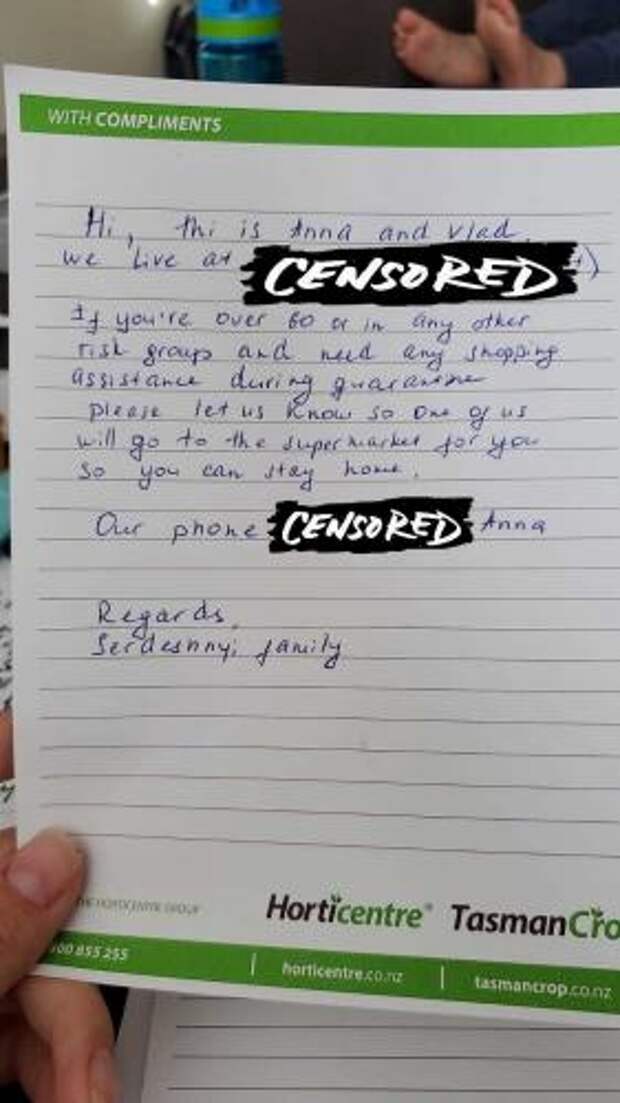 WITH COMPLIMENTS
Hi, thi is Anna and Vlad.
we live at CENSORED )
If you're over 60 or in any other
risk groups and need any shopping
assistance during quarantine
please let us know so one of us
will go to the supermarket for you
so you can stay home.
Our phone CENSORED Anna
Regards,
family
THE HORTICENTRE GROUP
Horticentre® TasmanCro
00 855 255 | horticentre.co.nz | tasmancrop.co.nz